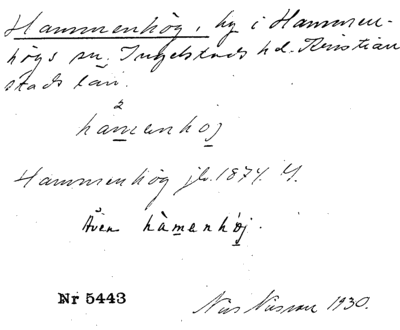 Hammenhög, by i Hammen-
högs sn. Ingelstads hd. Kristian
stads län.
2
hamenhoj
Hammenhög jb. 1874. Y.
Även hàmenhój.
Nr 5443
Nils Nilsson 1930.